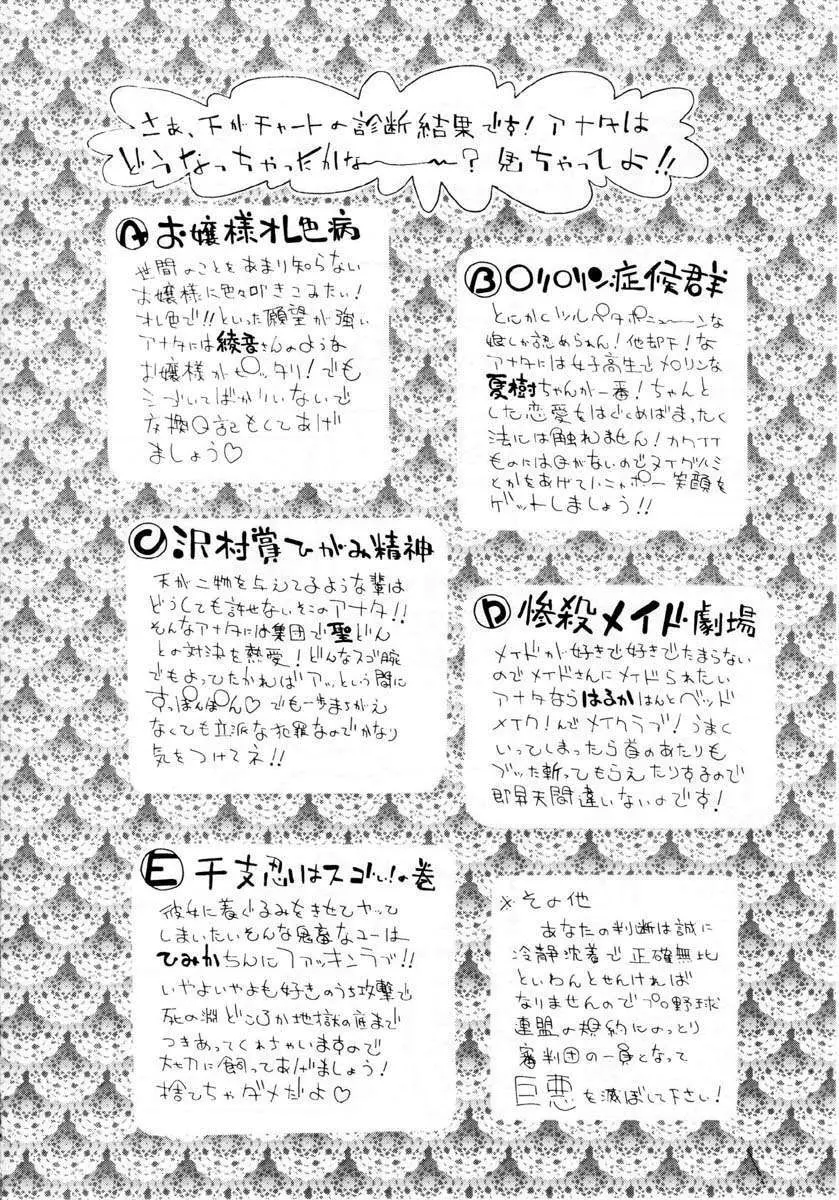 さぁ、下がチャートの診断結果です!アナタは
どうなっちゃったかな〜〜?見ちゃってしょ!!
A お嬢様オレ色病
世間のことをあまり知らない
お嬢様に色々叩きこみたい!
オレ色で!!といった願望が強い
アナタには綾音さんのような
お嬢様がピッタリ!でも
こづいてばかりいないで
交換日記もしてあげ
ましょう♡
B ○リ○リン症候群
とにかくツルペタポニューーンな
娘しか認められん!他却下!な
アナタには女子高生でメロリンな
夏樹ちゃんが一番!ちゃんと
した恋愛をはぐくめばまったく
法には触れません!カワイイ
ものには目がないのでヌイグルミ
とかをあげて
笑顔を
ゲットしましょう!!
C 沢村賞ひがみ精神
天が二物を与えてるような輩は
どうしても許せないそこのアナタ!!
そんなアナタには集団で聖どん
との対決を熱愛!どんなスゴ腕
でもよってたかればアッという間に
すっぽんぽん♡でも一歩まちがえ
なくても立派な犯罪なのでかなり
気をつけてネ!!
D 惨殺メイド劇場
メイドが好きで好きでたまらない
のでメイドさんにメイドられたい
アナタならはるかはんとベッド
メイク!んでメイクラブ!うまく
いってしまったら首のあたりも
ブッた斬ってもらえたりするので
即昇天間違いないのです!
E 干支忍りはスゴい!の巻
彼女に着ぐるみをきせてヤッて
しまいたいそんな鬼畜なユーは
ひみかちんにファッキンラブ!!
いやよいやよも好きのうち攻撃で
死の淵どころか地獄の底まで
つきあってくれちゃいますので
大切に飼ってあげましょう!
捨てちゃダメだよ♡
※その他
あなたの判断は誠に
冷静沈着で正確無比
といわんとせんければ
なりませんのでプロ野球
連盟の規約にのっとり
審判団の一員となって
巨悪を滅ぼして下さい!